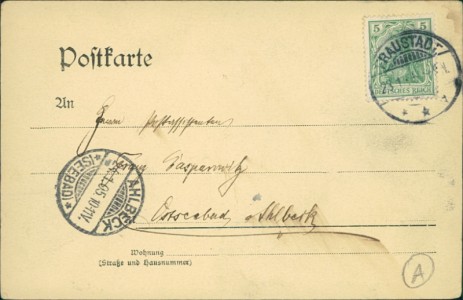 Postkarte
5 5
DEUTSCHES REICH
FRAUSTADT
An
Herrn Postassistenten
Gasparowitz
Ostseebad Ahlbeck
AHLBECK
(SEEBAD)
Wohnung
(Straße und Hausnummer)
A